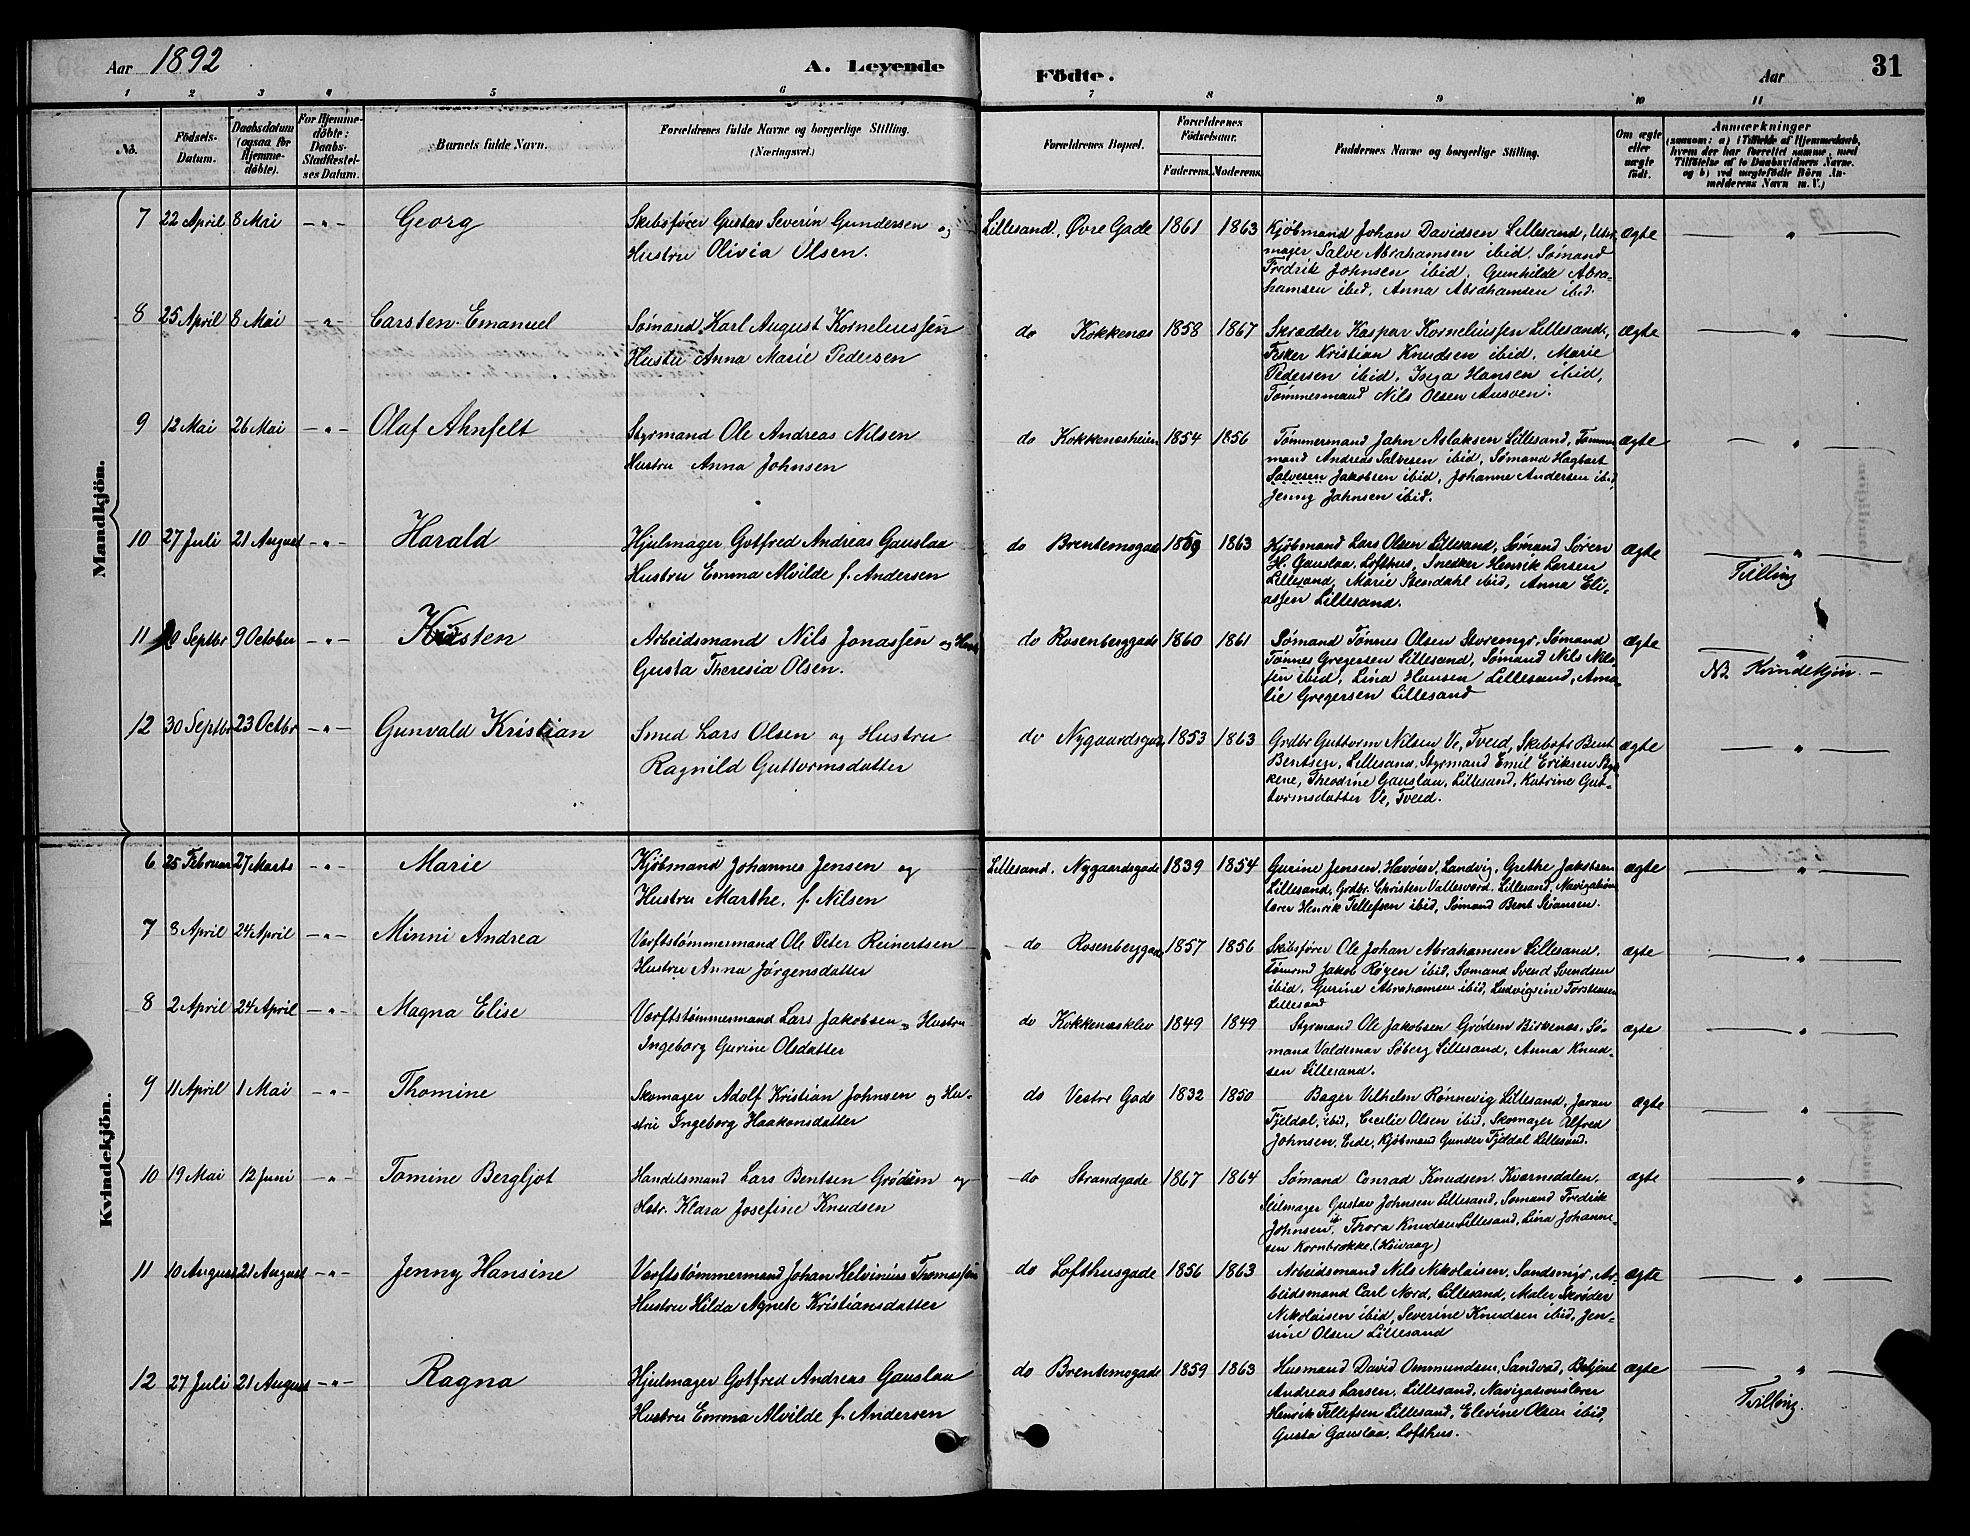 Aar 1892 A. Levende Födte. Aar 31
1 2 3 4 5 6 7 8 9 10 11
No. Födsels-Datum. Daabsdatum (ogsaa for Hjemmedöbte). For Hjemmedöbte: Daabs-Stadfæstelses Datum. Barnets fulde Navn. Forældrenes fulde Navne og borgerlige Stilling. (Næringsvei.) Forældrenes Bopæl. Forældrenes Födselsaar. Faderens. Moderens. Faddernes Navne og borgerlige Stilling. Om ægte eller uægte födt. Anmærkninger
(saasom: a) i Tilfælde af Hjemmedaab, hvem der har forrettet samme, med Tilföielse af to Daabsvidners Navne. og b) ved uægtefödte Börn Anmelderens Navn m. V.)
Mandkjön.
7 22 April 8 Mai -„- Georg Skibsfører Gustav Severin Gundersen og Lillesand, Øvre Gade 1861 1863 Kjøbmand Johan Davidsen Lillesand, Uhr- ægte „
Hustru Olivia Olsen. mager Salve Abrahamsen ibid. Sømand
Fredrik Johnsen ibid, Gunhilde Abra-
hamsen ibid, Anna Abrahamsen ibid.
8 25 April 8 Mai -„- Carsten Emanuel Sømand Karl August Korneliussen do Kokkenæs 1858 1867 Skrædder Kaspar Korneliussen Lillesand, ægte „
Hustru Anna Marie Pedersen Fisker Kristian Knudsen ibid, Marie
Pedersen ibid, Inga Hansen ibid,
Tømmermand Nils Olsen
9 12 Mai 26 Mai -„- Olaf Ahnfelt Styrmand Ole Andreas Nilsen do Kokkenæsheien 1854 1856 Tømmermand Jahn Aslaksen Lillesand, Tømmer- ægte „
Hustru Anna Johnsen mand Andreas Salvesen ibid, Sømand Hagbart
Salvesen Jakobsen ibid, Johanne Andersen ibid
Jenny Jahnsen ibid.
10 27 Juli 21 August -„- Harald Hjulmager Gotfred Andreas Gauslaa do Brentemogade 1859 1863 Kjøbmand Lars Olsen Lillesand, Sømand Søren ægte „
Hustru Emma Alvilde f. Andersen H. Gauslaa, Lofthus, Snedker Henrik Larsen Tvilling
Lillesand, Marie Stendahl ibid, Anna Eli-
assen Lillesand.
11 Septbr 9 October -„- Kirsten Arbeidsmand Nils Jonassen og Hust. do Rosenberggade 1860 1861 Sømand Tønnes Olsen Storemyr, Sømand ægte „
Gusta Theresia Olsen. Tønnes Gregersen Lillesand, Sømand Nils Nils- NB Kvindekjøn. -
sen ibid, Lina Hansen Lillesand, Ama-
lie Gregersen Lillesand
12 30 Septbr 23 Octbr -„- Gunvald Kristian Smed Lars Olsen og Hustru do Nygaardsgade 1853 1863 Grdbr Guttorm Nilsen Ve, Tveid, Skibsfr Bent ægte „
Ragnild Guttormsdatter Bentsen, Lillesand, Styrmand Emil Eriksen Bir-
kene, Theodine Gauslaa, Lillesand, Katrine Gut-
tormsdatter Ve, Tveid.
Kvindekjön.
6 25 Februar 27 Marts -„- Marie Kjøbmand Johannes Jensen og Lillesand. Nygaardsgade 1839 1854 Gurine Jensen, Havøen, Landvig, Grethe Jakobsen ægte „
Hustru Marthe, f. Nilsen Lillesand, Grdbr. Christen Vallesverd, Lillesand, Navigations
lærer Henrik Tellefsen ibid, Sømand Bent
7 3 April 24 April -„- Minni Andrea Værftstømmermand Ole Peter Reinertsen do Rosenberggade 1857 1856 Skibsfører Ole Johan Abrahamsen Lillesand, ægte „
Hustru Anna Jørgensdatter Tømrmd Jakob Røyen ibid, Sømand Svend Svendsen
ibid, Gurine Abrahamsen ibid, Ludvigsine Torstensen
Lillesand
8 2 April 24 April -„- Magna Elise Værftstømmermand Lars Jakobsen og Hustru do Kokkenæsklev 1849 1849 Styrmand Ole Jakobsen Grødem Birkenæs, Sø- ægte „
Ingeborg Gurine Olsdatter mand Valdemar Søberg Lillesand, Anna Knud-
sen Lillesand.
9 11 April 1 Mai -„- Thomine Skomager Adolf Kristian Johnsen og Hu- do Vestre Gade 1832 1850 Bager Vilhelm Rønnevig Lillesand, Joran ægte „
stru Ingeborg Haakonsdatter Fjeldal, ibid, Cecilie Olsen ibid, Skomager Alfred
Johnsen, Eide, Kjøbmand Gunder Fjeldal Lillesand.
10 19 Mai 12 Juni -„- Tomine Bergljot Handelsmand Lars Bentsen Grødum og do Strandgade 1867 1864 Sømand Conrad Knudsen Kværnedalen, ægte „
Hstr. Klara Josefine Knudsen Seilmager Gustav Johnsen Lillesand, Sømand Fredrik
Johnsen ib, Thora Knudsen Lillesand, Lina Johanne-
sen Kornbrække (Høivaag)
11 10 August 21 August -„- Jenny Hansine Værftstømmermand Johan Helvinius Thomassen do Lofthusgade 1856 1863 Arbeidsmand Nils Nikolaisen, Sandsmyr, Ar- ægte „
Hustru Hilda Agnete Kristiansdatter beidsmand Carl Nord, Lillesand, Maler Skrøder
Nikolaisen ibid, Severine Knudsen ibid, Jen-
sine Olsen Lillesand
12 27 Juli 21 August -„- Ragna Hjulmager Gotfred Andreas Gauslaa do Brentemogade 1859 1863 Husmand David Ommundsen, Sandvad, Betjent ægte „
Hustru Emma Alvilde f. Andersen Andreas Larsen, Lillesand, Navigationslærer Tvilling.
Henrik Tellefsen Lillesand, Elevine Olsen ibid,
Gusta Gauslaa, Lofthus.